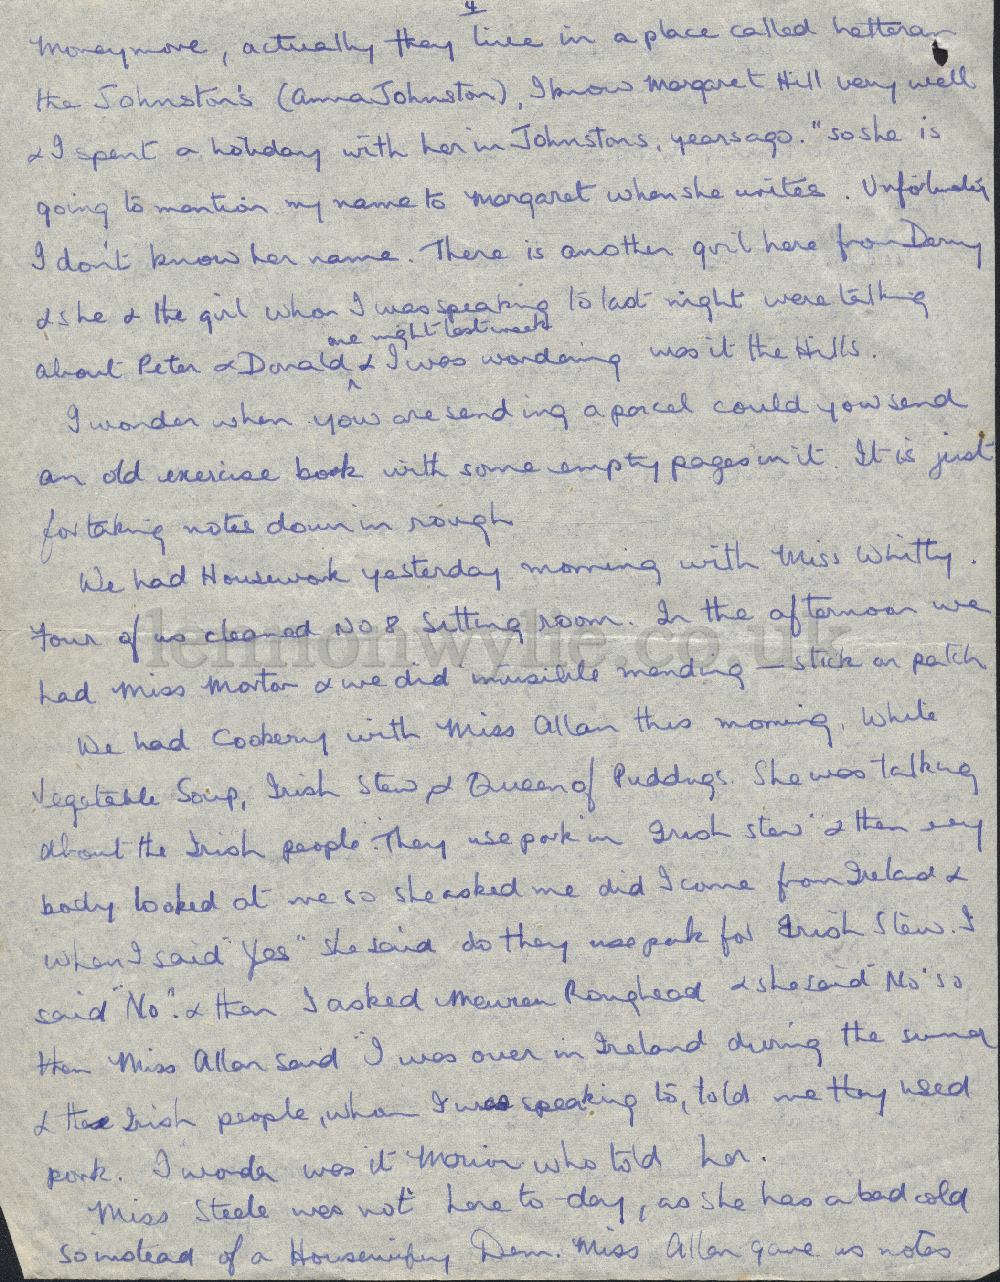 4
Moneymore, actually they live in a place called Letteran
the Johnston's (Anna Johnston), I know Margaret Hill very well
& I spent a holiday with her in Johnstons, years ago." so she is
going to mention my name to Margaret when she writes. Unfortunately
I don't know her name. There is another girl here from Derry
& she & the girl whom I was speaking to last night were talking
one night last week
about Peter & Donald & I was wondering was it the Hills.
I wonder when you are sending a parcel could you send
an old exercise book with some empty pages in it. It is just
for taking notes down in rough
We had Housework yesterday morning with Miss Whitty.
Four of us cleaned No 8 Sitting room. In the afternoon we
lennonwylie.co.uk
had Miss Morton & we did invisible mending — stick on patch
We had Cookery with Miss Allan this morning. White
Vegetable Soup, Irish Stew & Queen of Puddings. She was talking
about the Irish people "They use pork in Irish stew" & then every
body looked at me so she asked me did I come from Ireland &
when I said "Yes" she said do they use pork for Irish Stew. I
said "No". & then I asked Maureen Roughead & she said "No" so
then Miss Allan said "I was over in Ireland during the summer
& the Irish people, whom I was speaking to, told me they used
pork. I wonder was it Marion who told her.
Miss Steele was not here to-day, as she has a bad cold
so instead of a Housewifery Dem. Miss Allan gave us notes